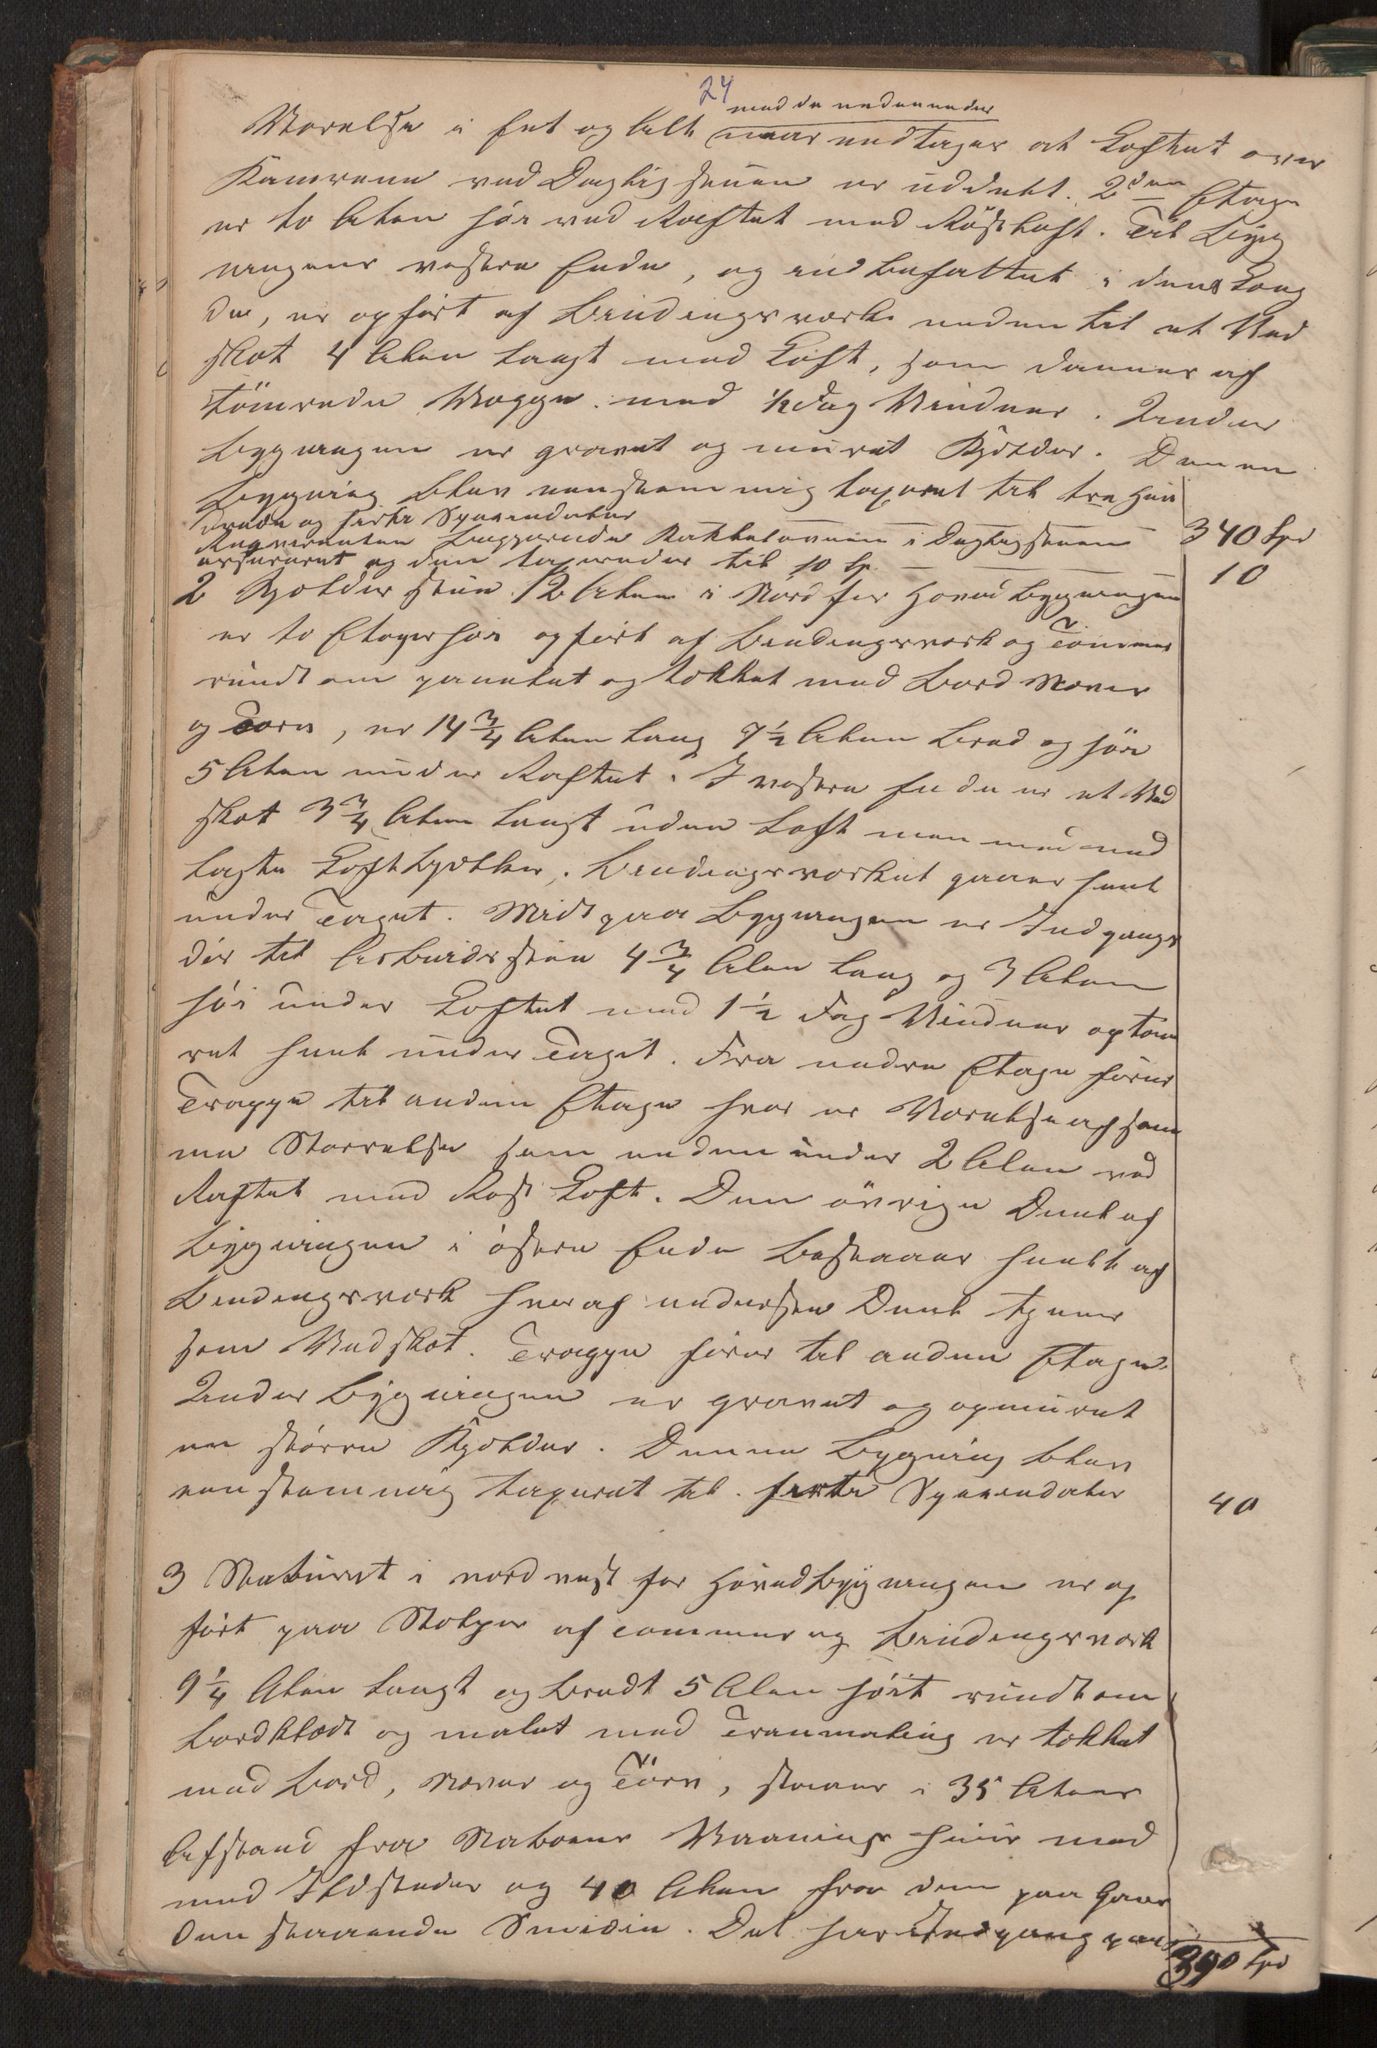 24
med de nedenunder
Værelse i Et og Alt naar undtages at Loftet over
Kamrene ved Dagligstuen er uddelt. 2den Etage
er to Alen høi ved Raftet med Röstloft. Til Byg
ningens vestre Ende, og indbefattet i dens Læng
de, er opført af Bindingsværk neden til et Ved
skot 4 Alen langt med Loft, som dannes af
tömrede Vægge med ½ Fag Vinduer. Under
Bygningen er gravet og muret Kjelder. Denne
Bygning blev eenstemmig taxeret til tre Hun
drede og firti Speciedaler 340 Spd
Reqvirenten begjærede Kakkelovnen i Dagligstuen
assureret og den taxeredes til 10 Sp. 10
2 Kjelderstue 12 Alen i Nord for Hovedbygningen
er to Etager høi opført af Bindingsværk og Tömmer
rundt om panelet og tækket med Bord Næver
og Torv, er 14 3/4 Alen lang 7 1/2 Alen bred og høi
5 Alen under Raftet. I vestre Ende er et Ved
skot 3 3/4 Alen langt uden Loft men med ned
lagte Loftbjelker, Bindingsværket gaaer heelt
under Taget. Midt paa Bygningen er Indgangs
dør til Arbeidsstue 4 3/4 Alen lang og 3 Alen
høi under Loftet med 1 1/2 Fag Vinduer optöm
ret heelt under Taget. Fra nedre Etage fører
Trappe til anden Etage hvor er Værelse af sam
me Størrelse som nedenunder 2 Alen ved
Raftet med Röst Loft. Den øvrige Deel af
Bygningen i østre Ende bestaaer heelt af
Bindingsværk hvoraf nederste Deel tjener
som Vedskot. Trappe fører til anden Etage.
Under Bygningen er gravet og opmuret
en større Kjelder. Denne Bygning blev
eenstemmig taxeret til firti Speciedaler 40
3 Staburet i nordvest for Hovedbygningen er op
ført paa Stolper af Tømmer og Bindingsværk
9 1/4 Alen langt og bredt 5 Alen høit rundt om
bordklædt og malet med Tranmaling er tækket
med Bord, Næver og Törv, staaer i 35 Alens
Afstand fra Naboens Vaaningshuus med
med Ildsteder og 40 Alen fra den paa Gaar
den staaende Smidie. Det har Indgang paa
390 Spd